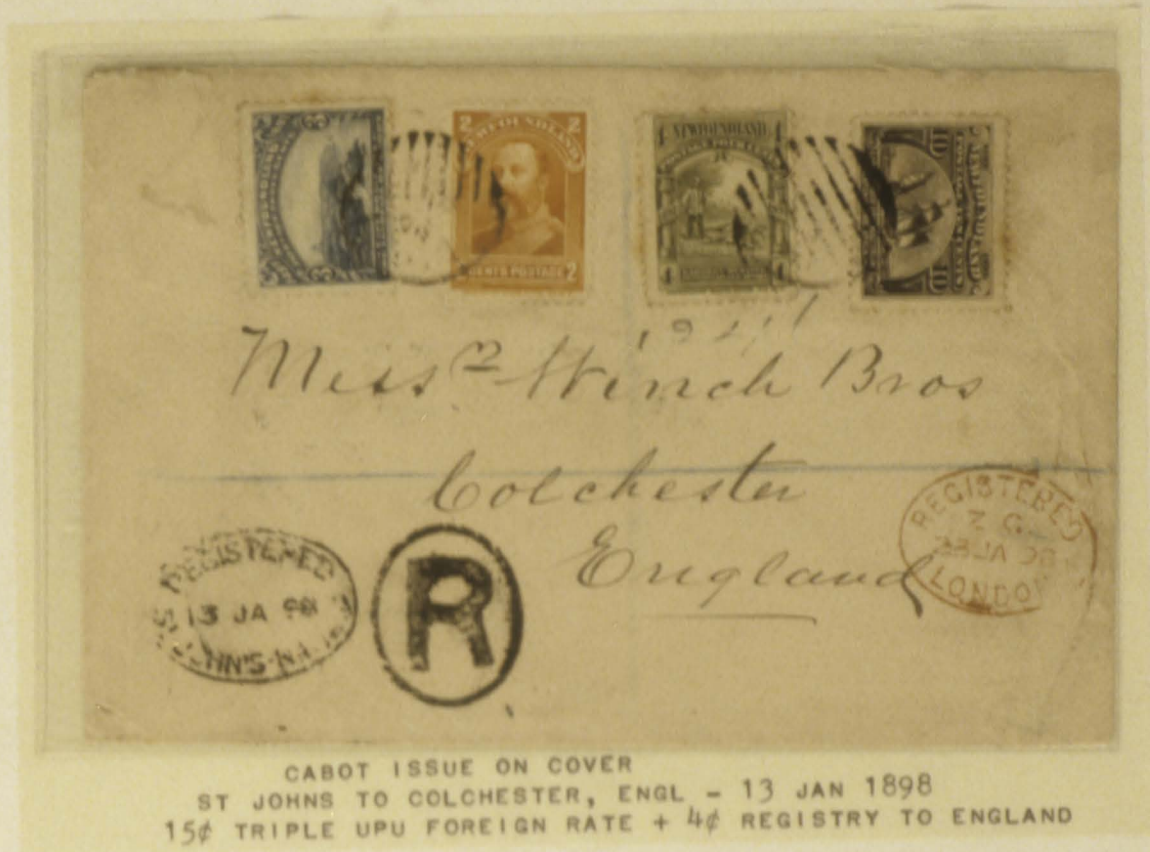 3 3
3 3
2 2
NEWFOUNDLAND
CENTS POSTAGE 2
4 4
NEWFOUNDLAND
POSTAGE FOUR CENTS
4 4
10 10
Messrs Winch Bros
Colchester
England
REGISTERED
13 JA 98
ST. JOHN'S N.F.
R
REGISTERED
Z G
23 JA 98
LONDON
CABOT ISSUE ON COVER
ST JOHNS TO COLCHESTER, ENGL - 13 JAN 1898
15¢ TRIPLE UPU FOREIGN RATE + 4¢ REGISTRY TO ENGLAND